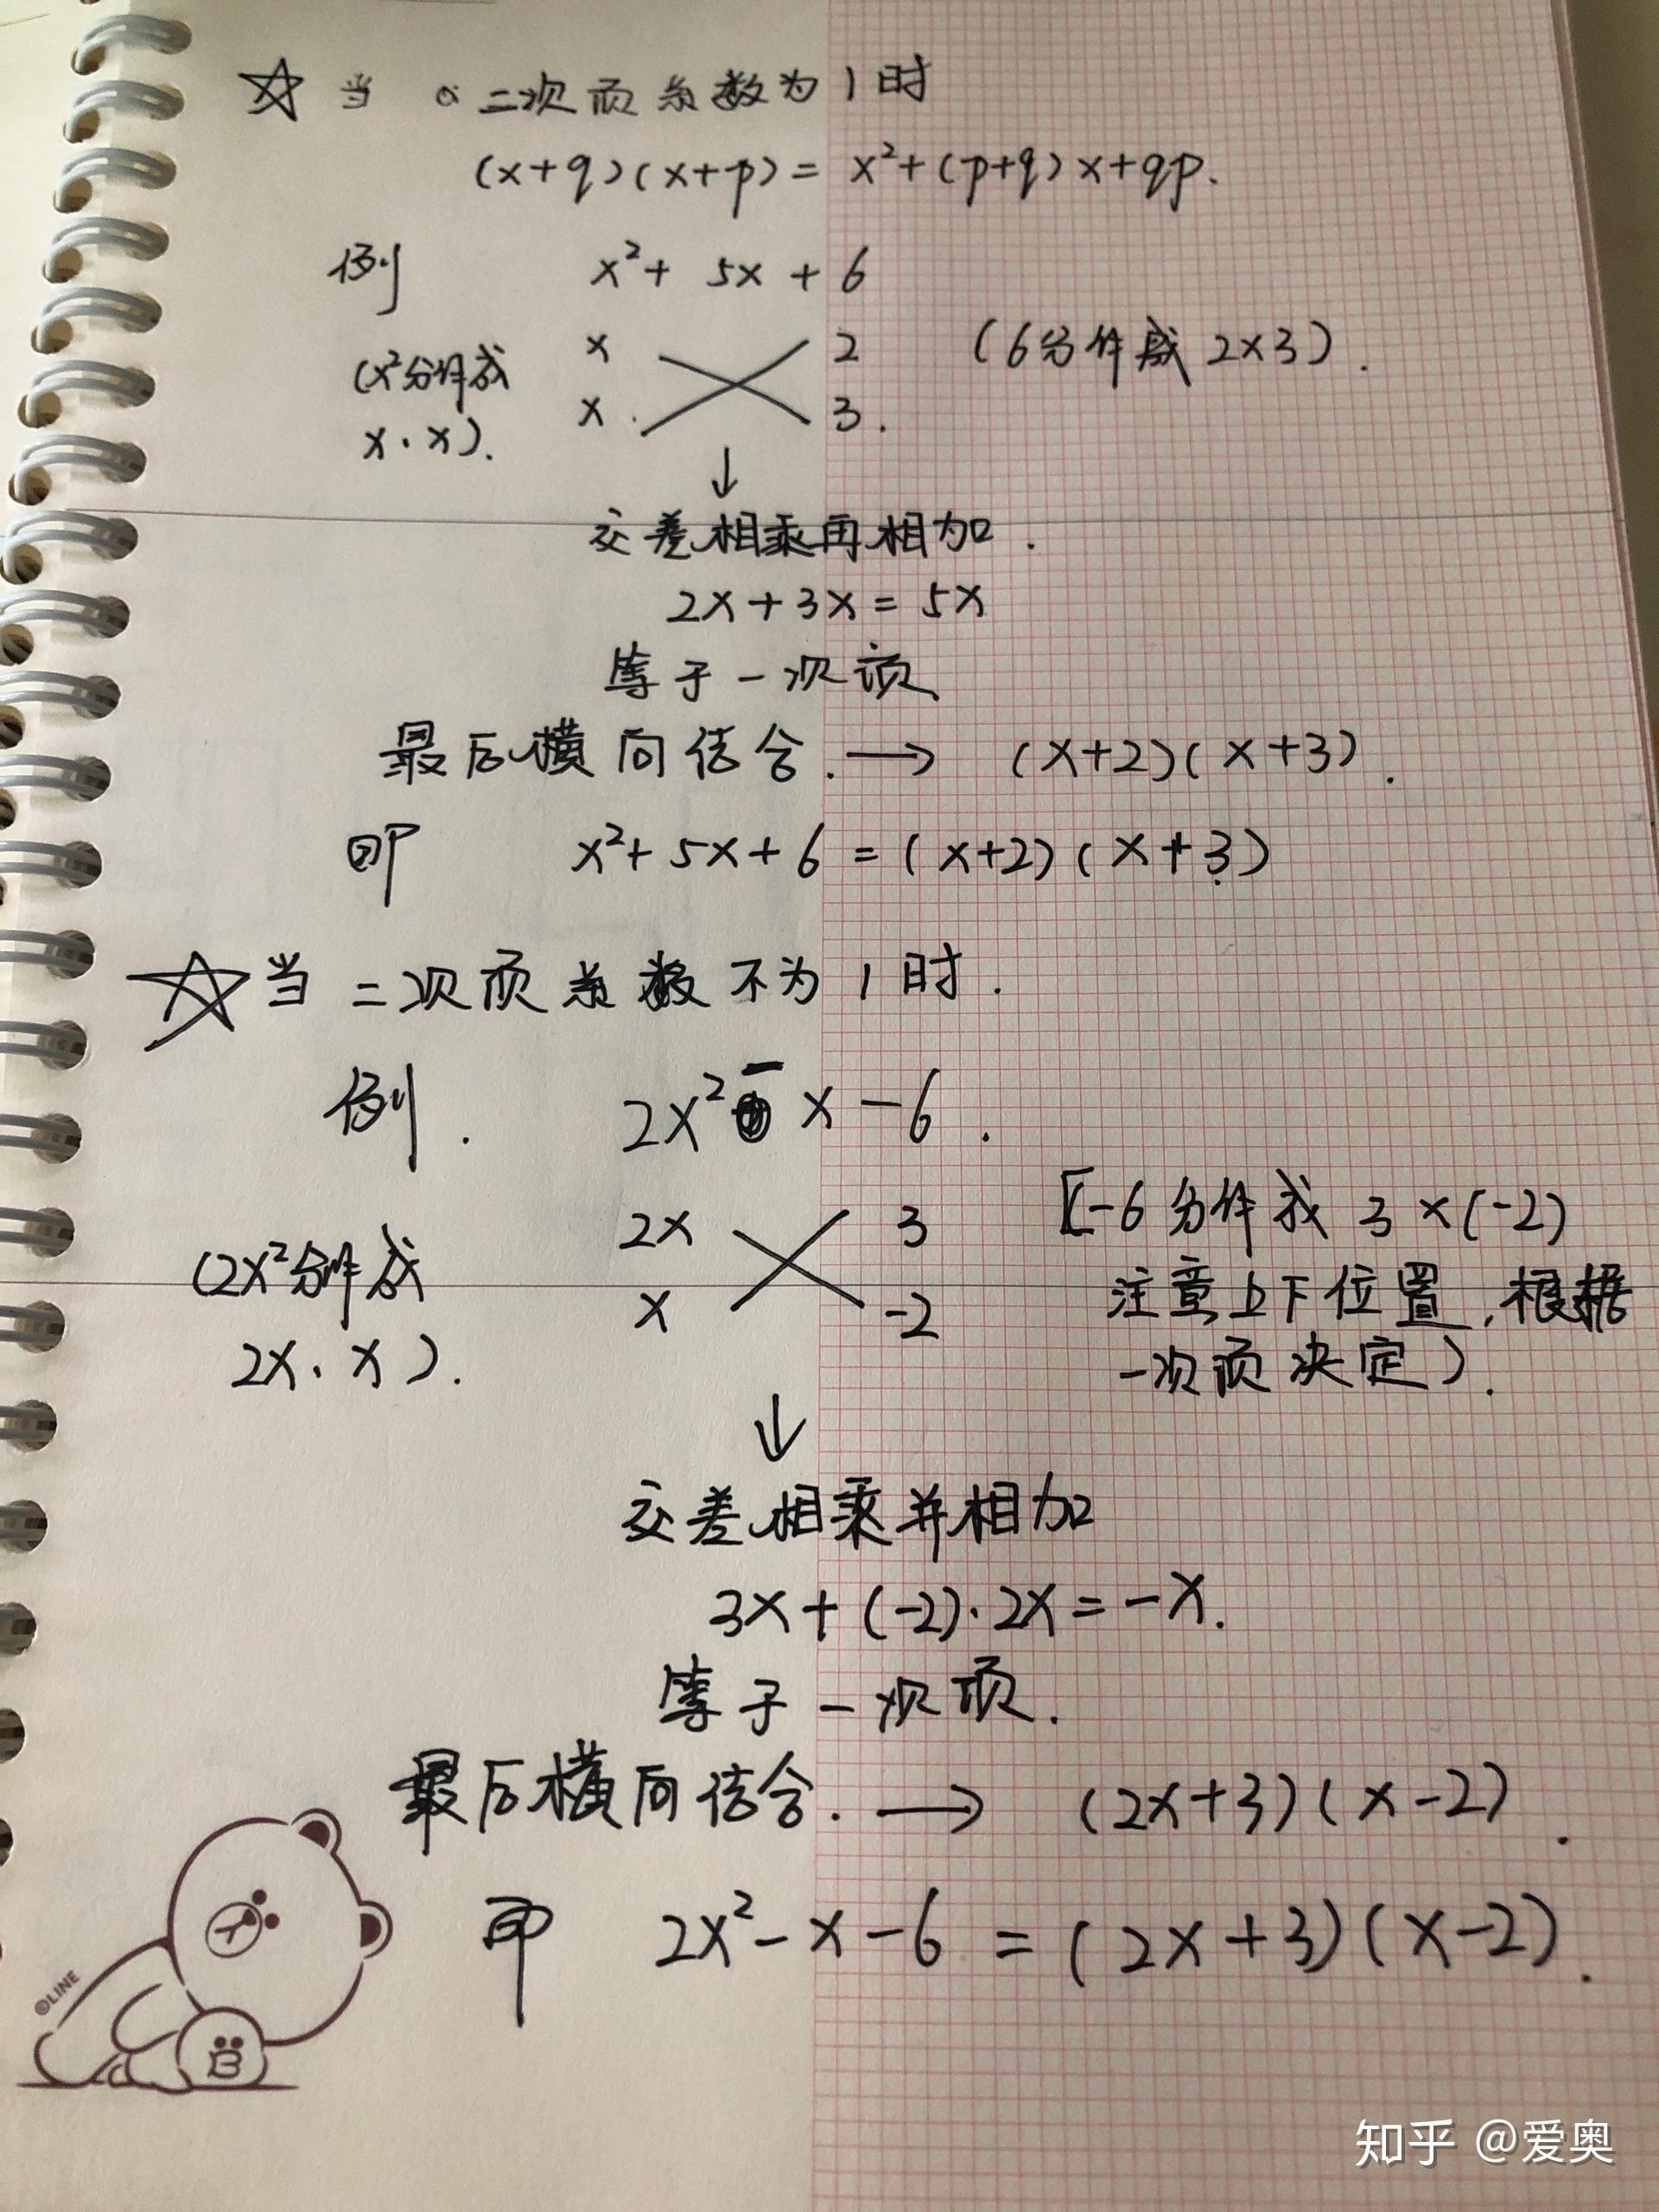 ☆ 当 二次项系数为1时
(x+q)(x+p) = x²+(p+q)x+qp.
例 x²+ 5x + 6
(x²分作成 x 2 (6分作成 2×3).
x·x). x. 3.
↓
交差相乘再相加.
2x+3x=5x
等于一次项
最后横向结合. → (x+2)(x+3).
即 x²+5x+6=(x+2)(x+3)
☆当二次项系数不为1时.
例. 2x²-x-6.
2x 3 [-6分作成 3×(-2)
(2x²分作成 x -2 注意上下位置,根据
2x·x). 一次项决定).
↓
交差相乘并相加
3x+(-2)·2x=-x.
等于一次项.
最后横向结合. → (2x+3)(x-2).
即 2x²-x-6=(2x+3)(x-2).
©LINE
知乎 @爱奥